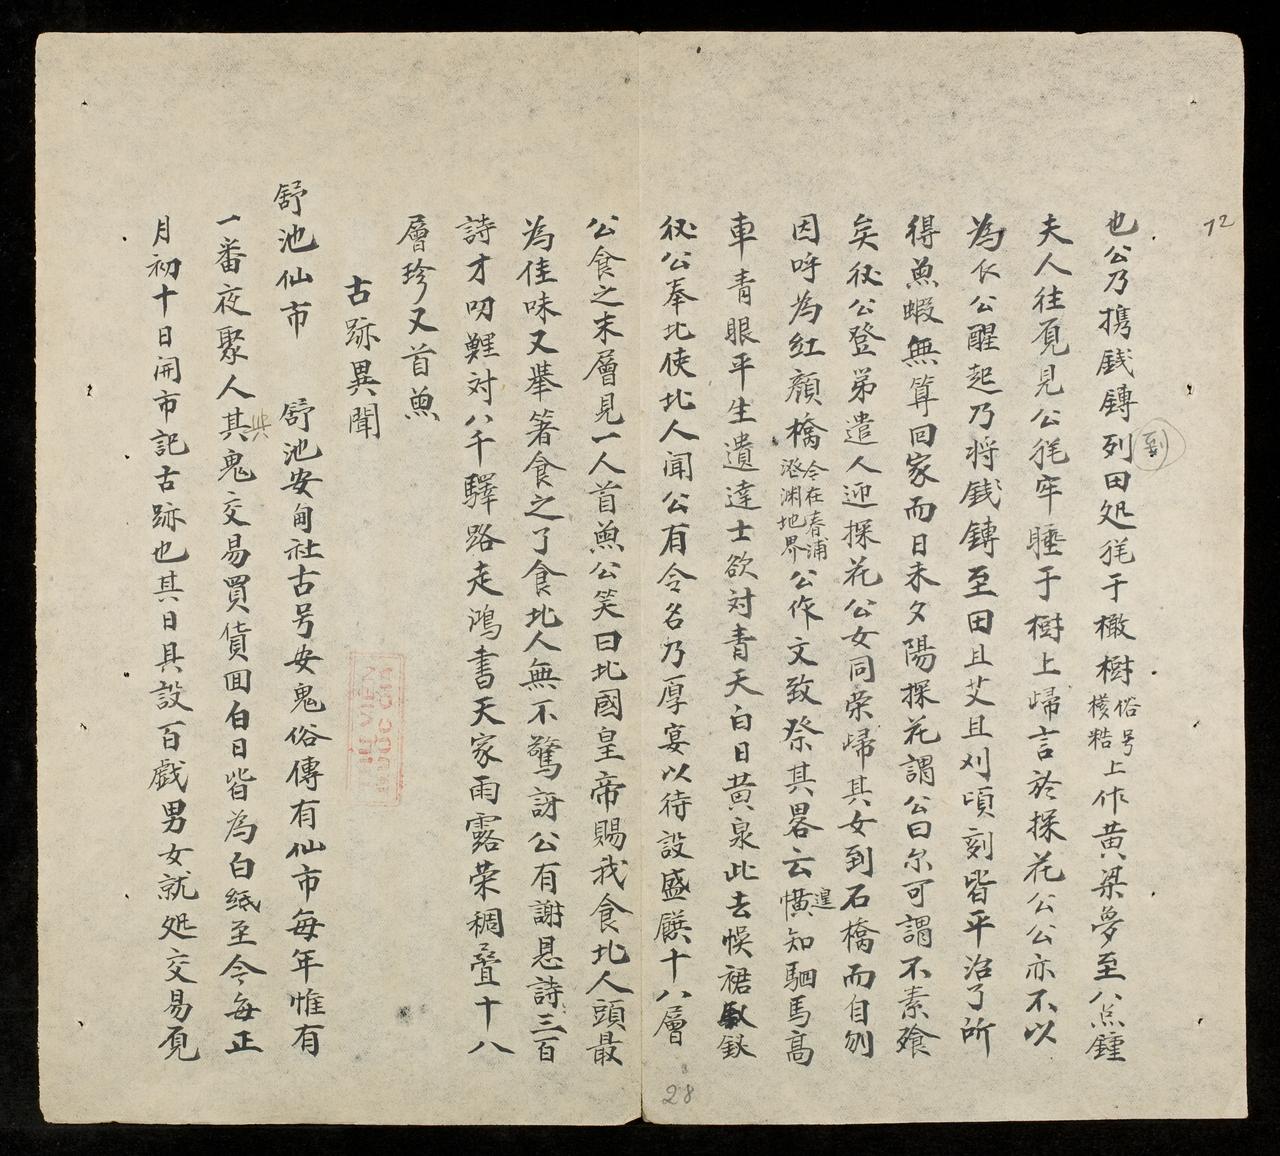 72
也公乃携錢鏄列田処㲠于橄樹俗号㭲䊝上作黄梁夢至八点鍾
到
夫人往覓見公㲠牢睡于樹上歸言於探花公公亦不以
為衣公醒起乃将錢鏄至田且艾且刈頃刻皆平治了所
得魚蝦無算回家而日未夕陽探花謂公曰尔可謂不素飱
矣後公登弟遣人迎探花公女同荣歸其女到石橋而自刎
因呼為紅顔橋今在春浦澁渊地界公作文致祭其畧云惶知駟馬高
遑
車青眼平生遺達士欲对青天白日黄泉此去悞裙釵
後公奉北使北人闻公有令名乃厚宴以待設盛饌十八層
公食之末層見一人首魚公笑曰北國皇帝賜我食北人頭最
為佳味又舉箸食之了食北人無不驚訝公有謝恩詩三百
詩才叨鯉対八千驛路走鴻書天家雨露荣稠叠十八
層珍又首魚
古跡異聞
舒池仙市 舒池安甸社古号安鬼俗傳有仙市每年惟有
一番夜聚人其鬼交易買貨回白日皆為白纸至今每正
共
月初十日開市記古跡也其日具設百戱男女就処交易覓
THU VIEN
QUOC GIA
28